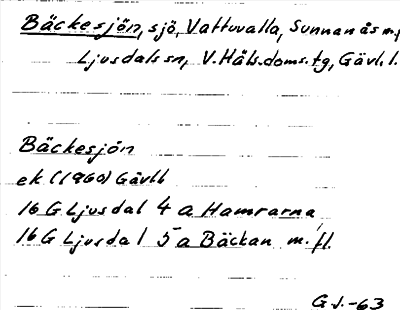 Bäckesjön, sjö, Vattuvalla, Sunnanås m.fl.
Ljusdals sn, V.Häls.doms.tg, Gävl.l.
Bäckesjön
ek (1960) Gävlb
16 G Ljusdal 4 a Hamrarna
16 G Ljusdal 5 a Bäckan m.fl.
G.J.-63